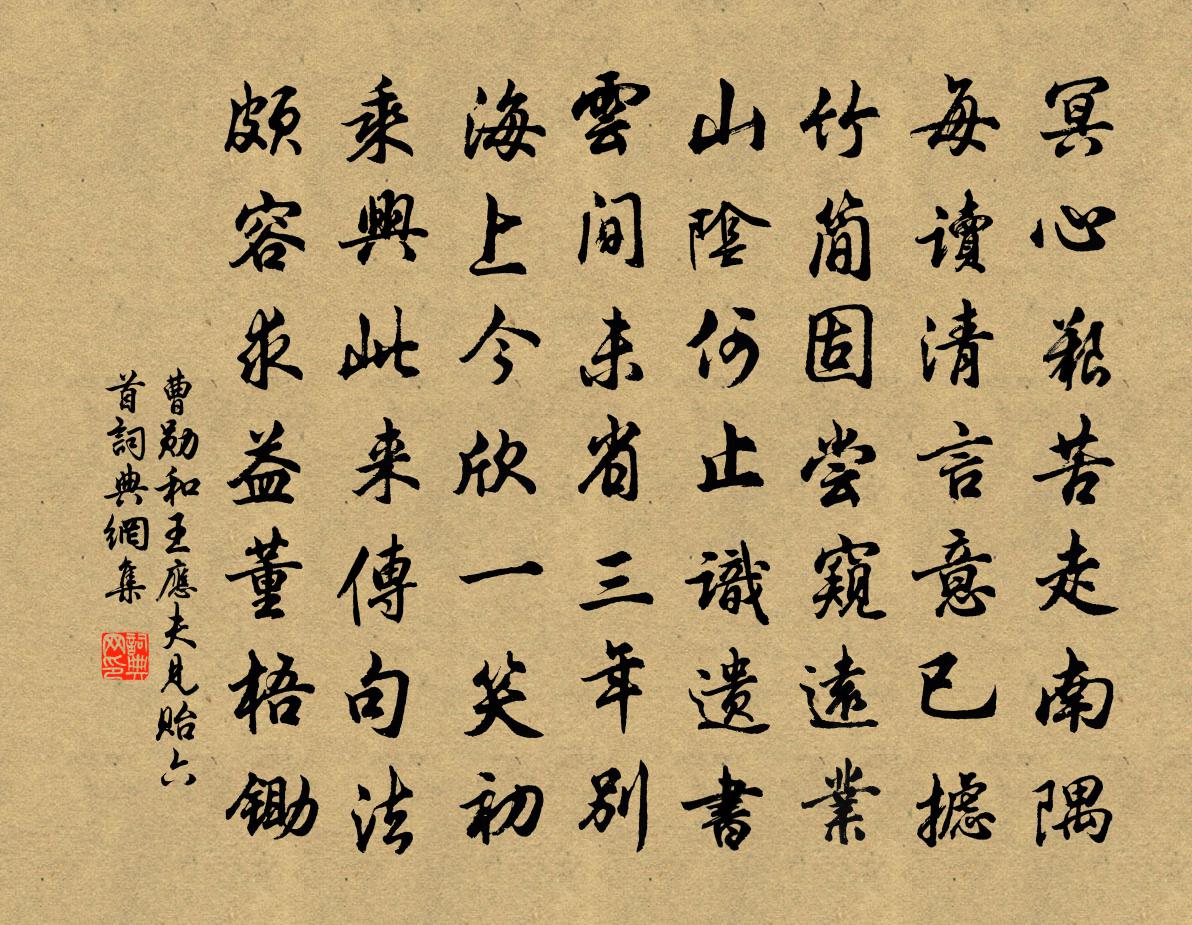 冥心艱苦走南隅
每讀清言意已攄
竹简固尝窺遠業
山陰何止識遗書
雲间未省三年别
海上今欣一笑初
乘興此来傳句法
頗容求益董梧鋤
曹勛和王應夫見貽六
首詞典網集
詞典网印